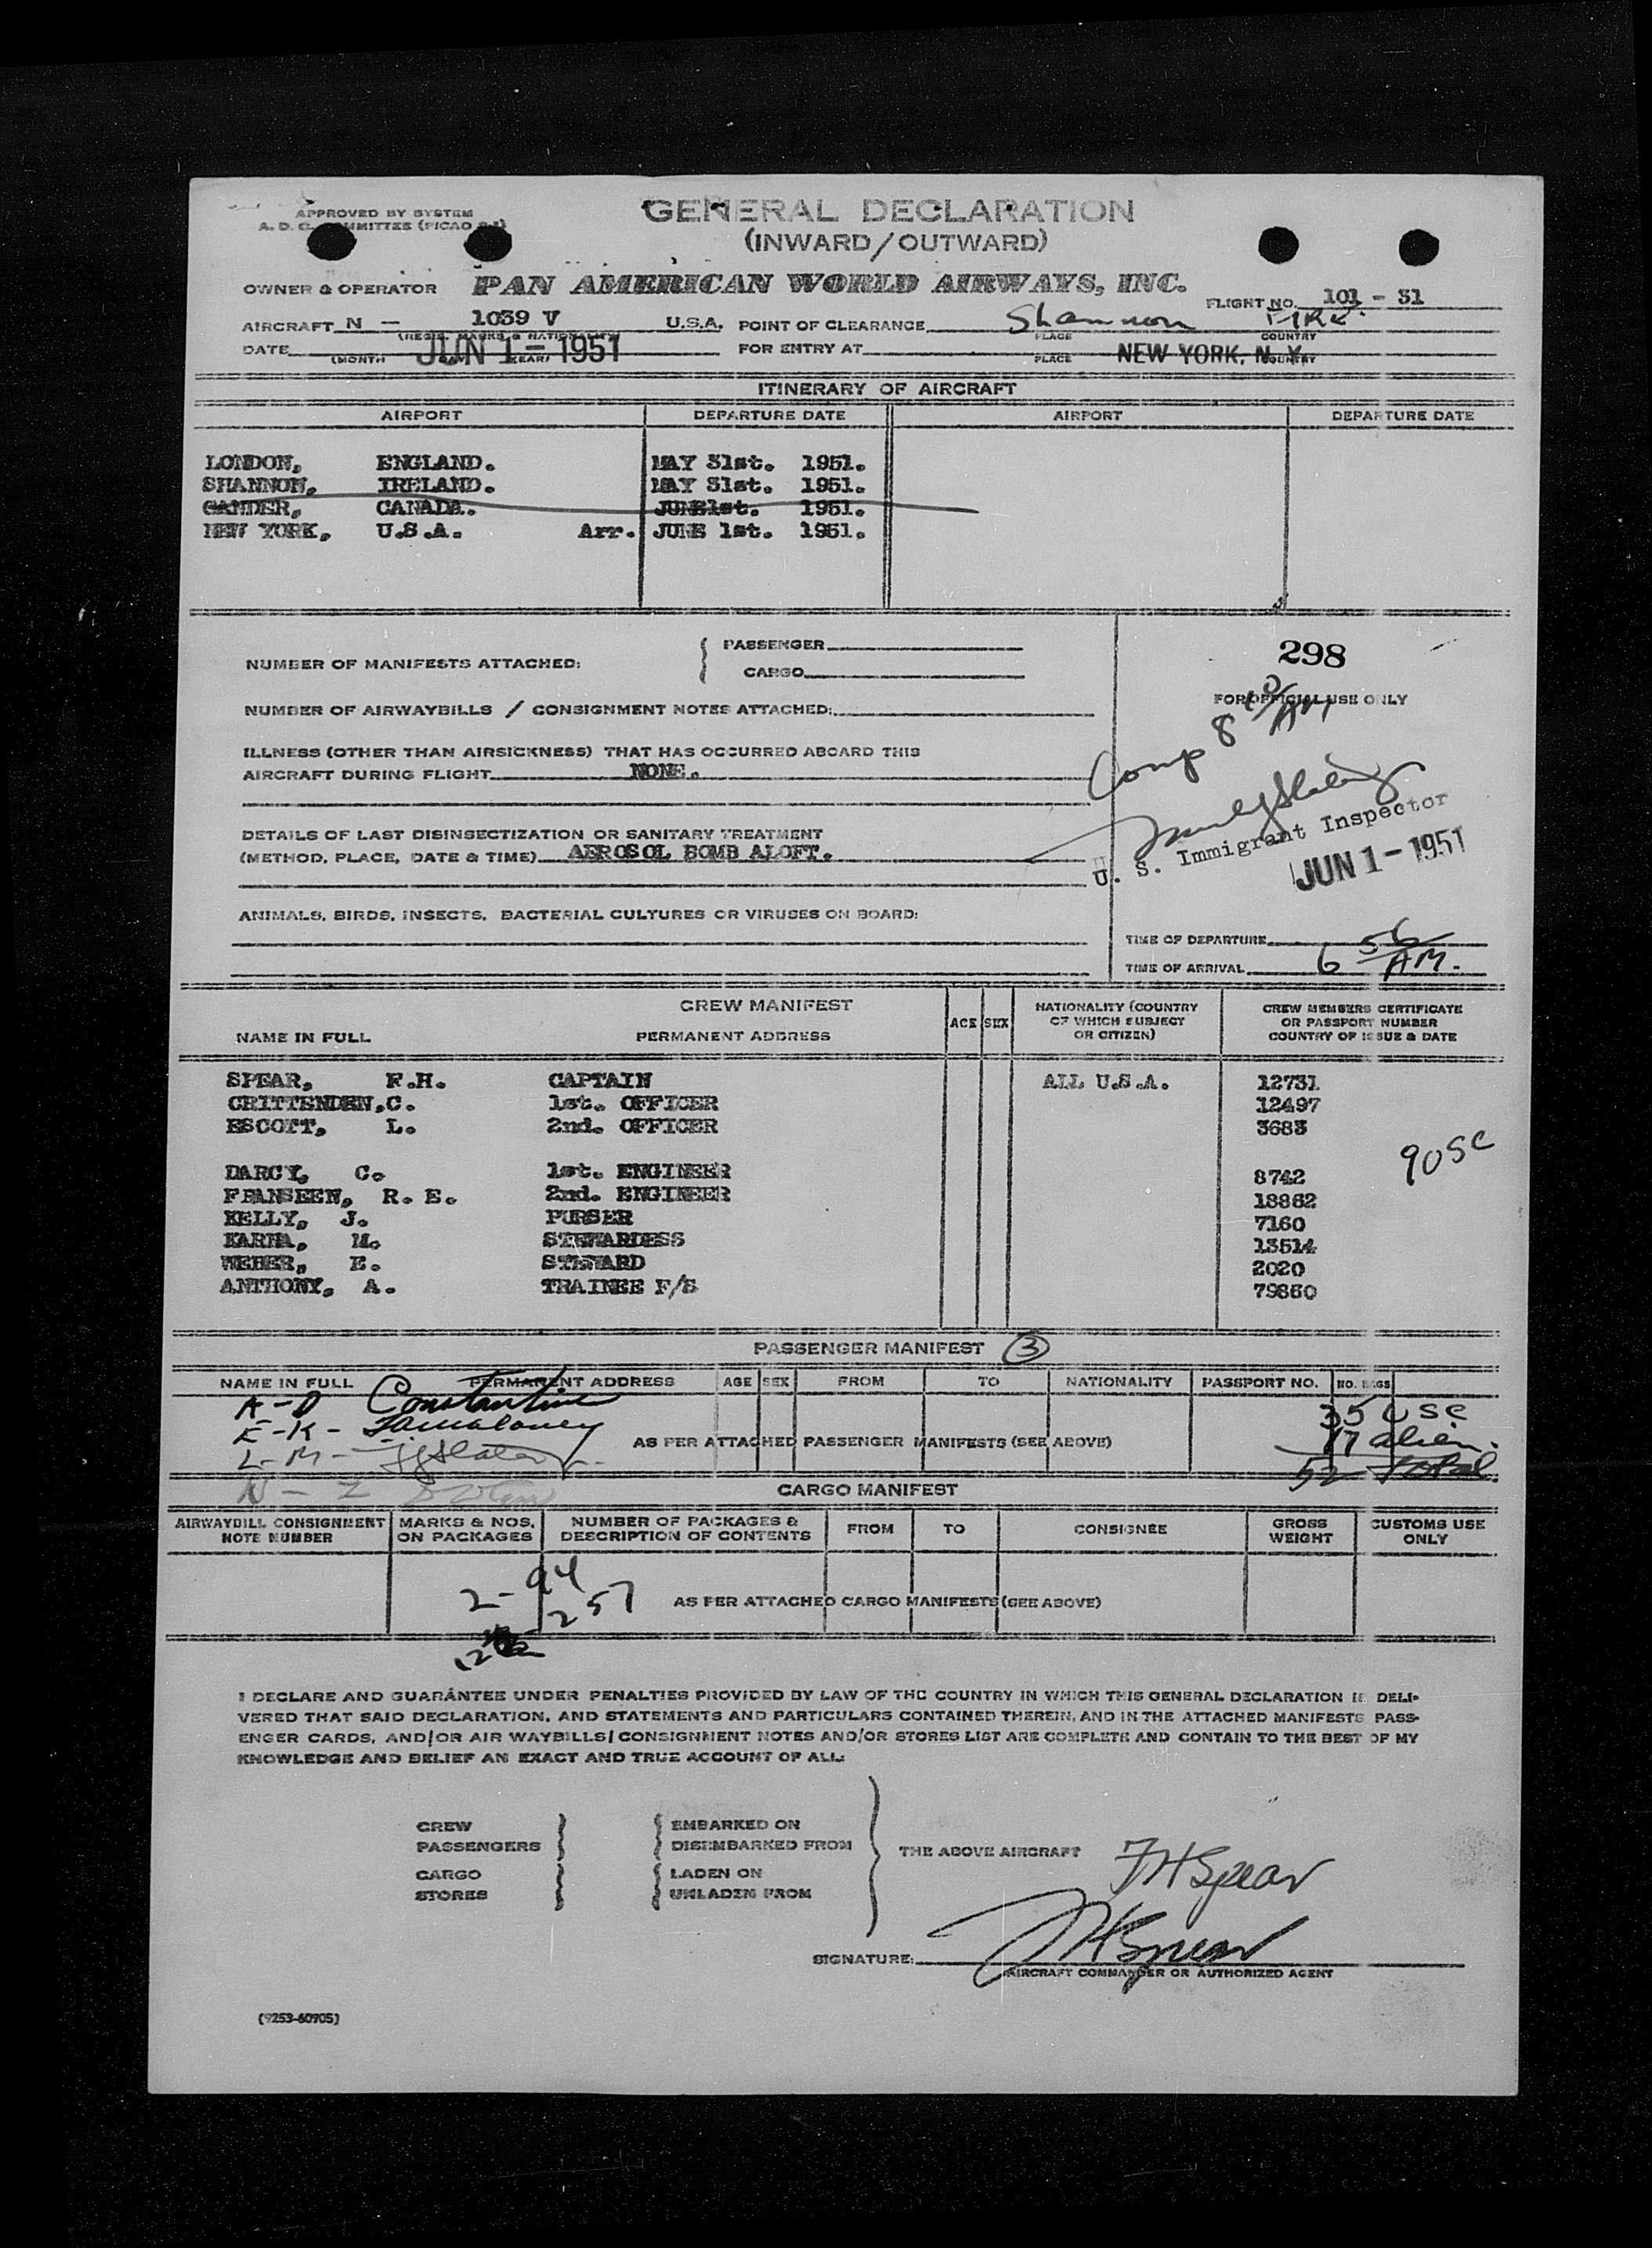 APPROVED BY SYSTEM
GENERAL DECLARATION
(INWARD/OUTWARD)
OWNER & OPERATOR PAN AMERICAN WORLD AIRWAYS, INC.
FLIGHT NO. 101 - 31
AIRCRAFT N - 1039 V U.S.A. POINT OF CLEARANCE Shannon
(REGIS. MARKS & NATIONALITY) PLACE COUNTRY
DATE JUN 1 - 1951 FOR ENTRY AT NEW YORK, N.Y.
(MONTH YEAR) PLACE COUNTRY
ITINERARY OF AIRCRAFT
AIRPORT DEPARTURE DATE AIRPORT DEPARTURE DATE
LONDON, ENGLAND. MAY 31st. 1951.
SHANNON, IRELAND. MAY 31st. 1951.
GANDER, CANADA. JUNE1st. 1951.
NEW YORK, U.S.A. Arr. JUNE 1st. 1951.
298
PASSENGER
NUMBER OF MANIFESTS ATTACHED:
CARGO
FOR OFFICIAL USE ONLY
NUMBER OF AIRWAYBILLS / CONSIGNMENT NOTES ATTACHED:
Comp 8 AM
ILLNESS (OTHER THAN AIRSICKNESS) THAT HAS OCCURRED ABOARD THIS
AIRCRAFT DURING FLIGHT NONE.
DETAILS OF LAST DISINSECTIZATION OR SANITARY TREATMENT
(METHOD, PLACE, DATE & TIME) AEROSOL BOMB ALOFT.
U. S. Immigrant Inspector
JUN 1 - 1951
ANIMALS, BIRDS, INSECTS, BACTERIAL CULTURES OR VIRUSES ON BOARD:
TIME OF DEPARTURE
TIME OF ARRIVAL 6 56 AM.
CREW MANIFEST
NAME IN FULL PERMANENT ADDRESS AGE SEX NATIONALITY (COUNTRY OF WHICH SUBJECT OR CITIZEN) CREW MEMBERS CERTIFICATE OR PASSPORT NUMBER COUNTRY OF ISSUE & DATE
SPEAR, F.H. CAPTAIN ALL U.S.A. 12731
CRITTENDEN,C. 1st. OFFICER 12497
ESCOTT, L. 2nd. OFFICER 3683
9 USC
DARCY, C. 1st. ENGINEER 8742
FRANSEEN, R. E. 2nd. ENGINEER 18862
KELLY, J. PURSER 7160
KARHA, M. STEWARDESS 13514
WEBER, E. STEWARD 2020
ANTHONY, A. TRAINEE F/S 79860
PASSENGER MANIFEST 3
NAME IN FULL PERMANENT ADDRESS AGE SEX FROM TO NATIONALITY PASSPORT NO. NO. BAGS
A-D Constantine
35 USC
E-K-
AS PER ATTACHED PASSENGER MANIFESTS (SEE ABOVE)
17 alien.
L-M-
52 Total
N-Z
CARGO MANIFEST
AIRWAYBILL CONSIGNMENT NOTE NUMBER MARKS & NOS. ON PACKAGES NUMBER OF PACKAGES & DESCRIPTION OF CONTENTS FROM TO CONSIGNEE GROSS WEIGHT CUSTOMS USE ONLY
2-94
257
AS PER ATTACHED CARGO MANIFESTS (SEE ABOVE)
I DECLARE AND GUARANTEE UNDER PENALTIES PROVIDED BY LAW OF THE COUNTRY IN WHICH THIS GENERAL DECLARATION IS DELI-
VERED THAT SAID DECLARATION, AND STATEMENTS AND PARTICULARS CONTAINED THEREIN, AND IN THE ATTACHED MANIFESTS PASS-
ENGER CARDS, AND/OR AIR WAYBILLS/CONSIGNMENT NOTES AND/OR STORES LIST ARE COMPLETE AND CONTAIN TO THE BEST OF MY
KNOWLEDGE AND BELIEF AN EXACT AND TRUE ACCOUNT OF ALL:
CREW EMBARKED ON
PASSENGERS DISEMBARKED FROM
THE ABOVE AIRCRAFT FHSpear
CARGO LADEN ON
STORES UNLADEN FROM
SIGNATURE: FHSpear
AIRCRAFT COMMANDER OR AUTHORIZED AGENT
(9253-60705)